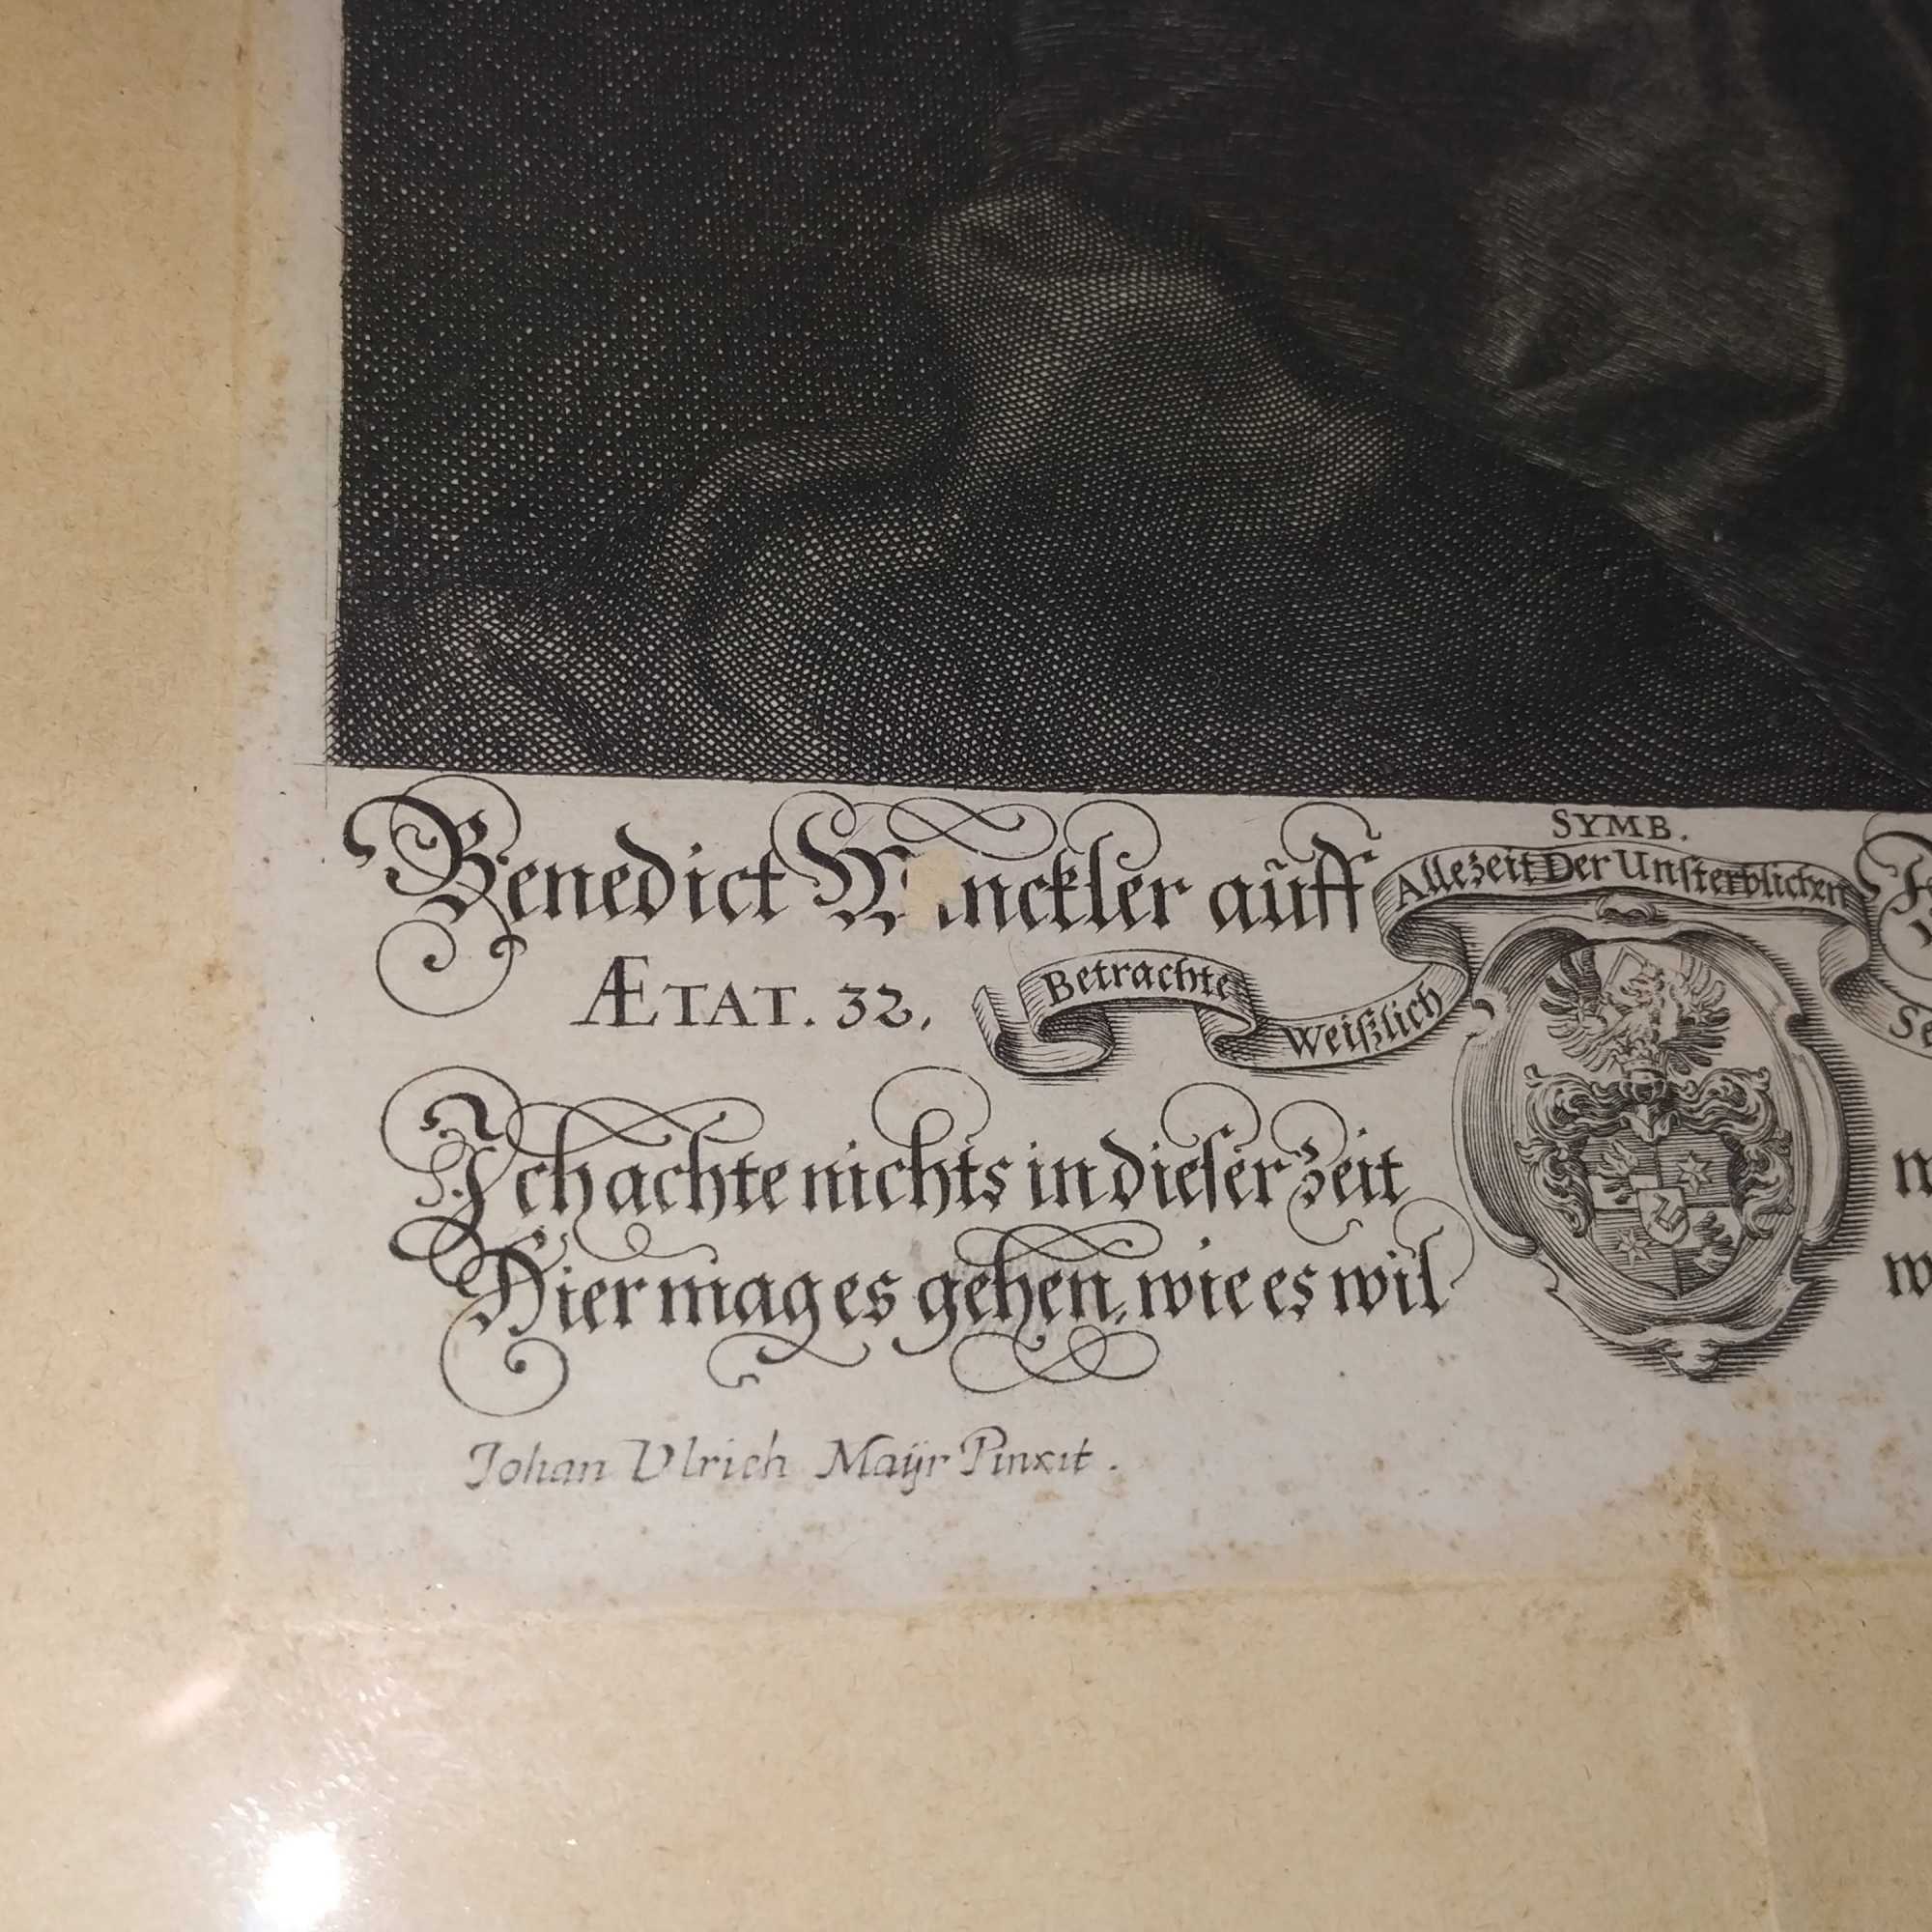 Benedict W nckler aũff
SYMB.
Allezeit Der Unſterblichen
ÆTAT. 32,
Betrachte
Weiſzlich
Ich achte nichts in dieſer zeit
Hier mag es gehen, wie es wil
Johan Ulrich Maÿr Pinxit.